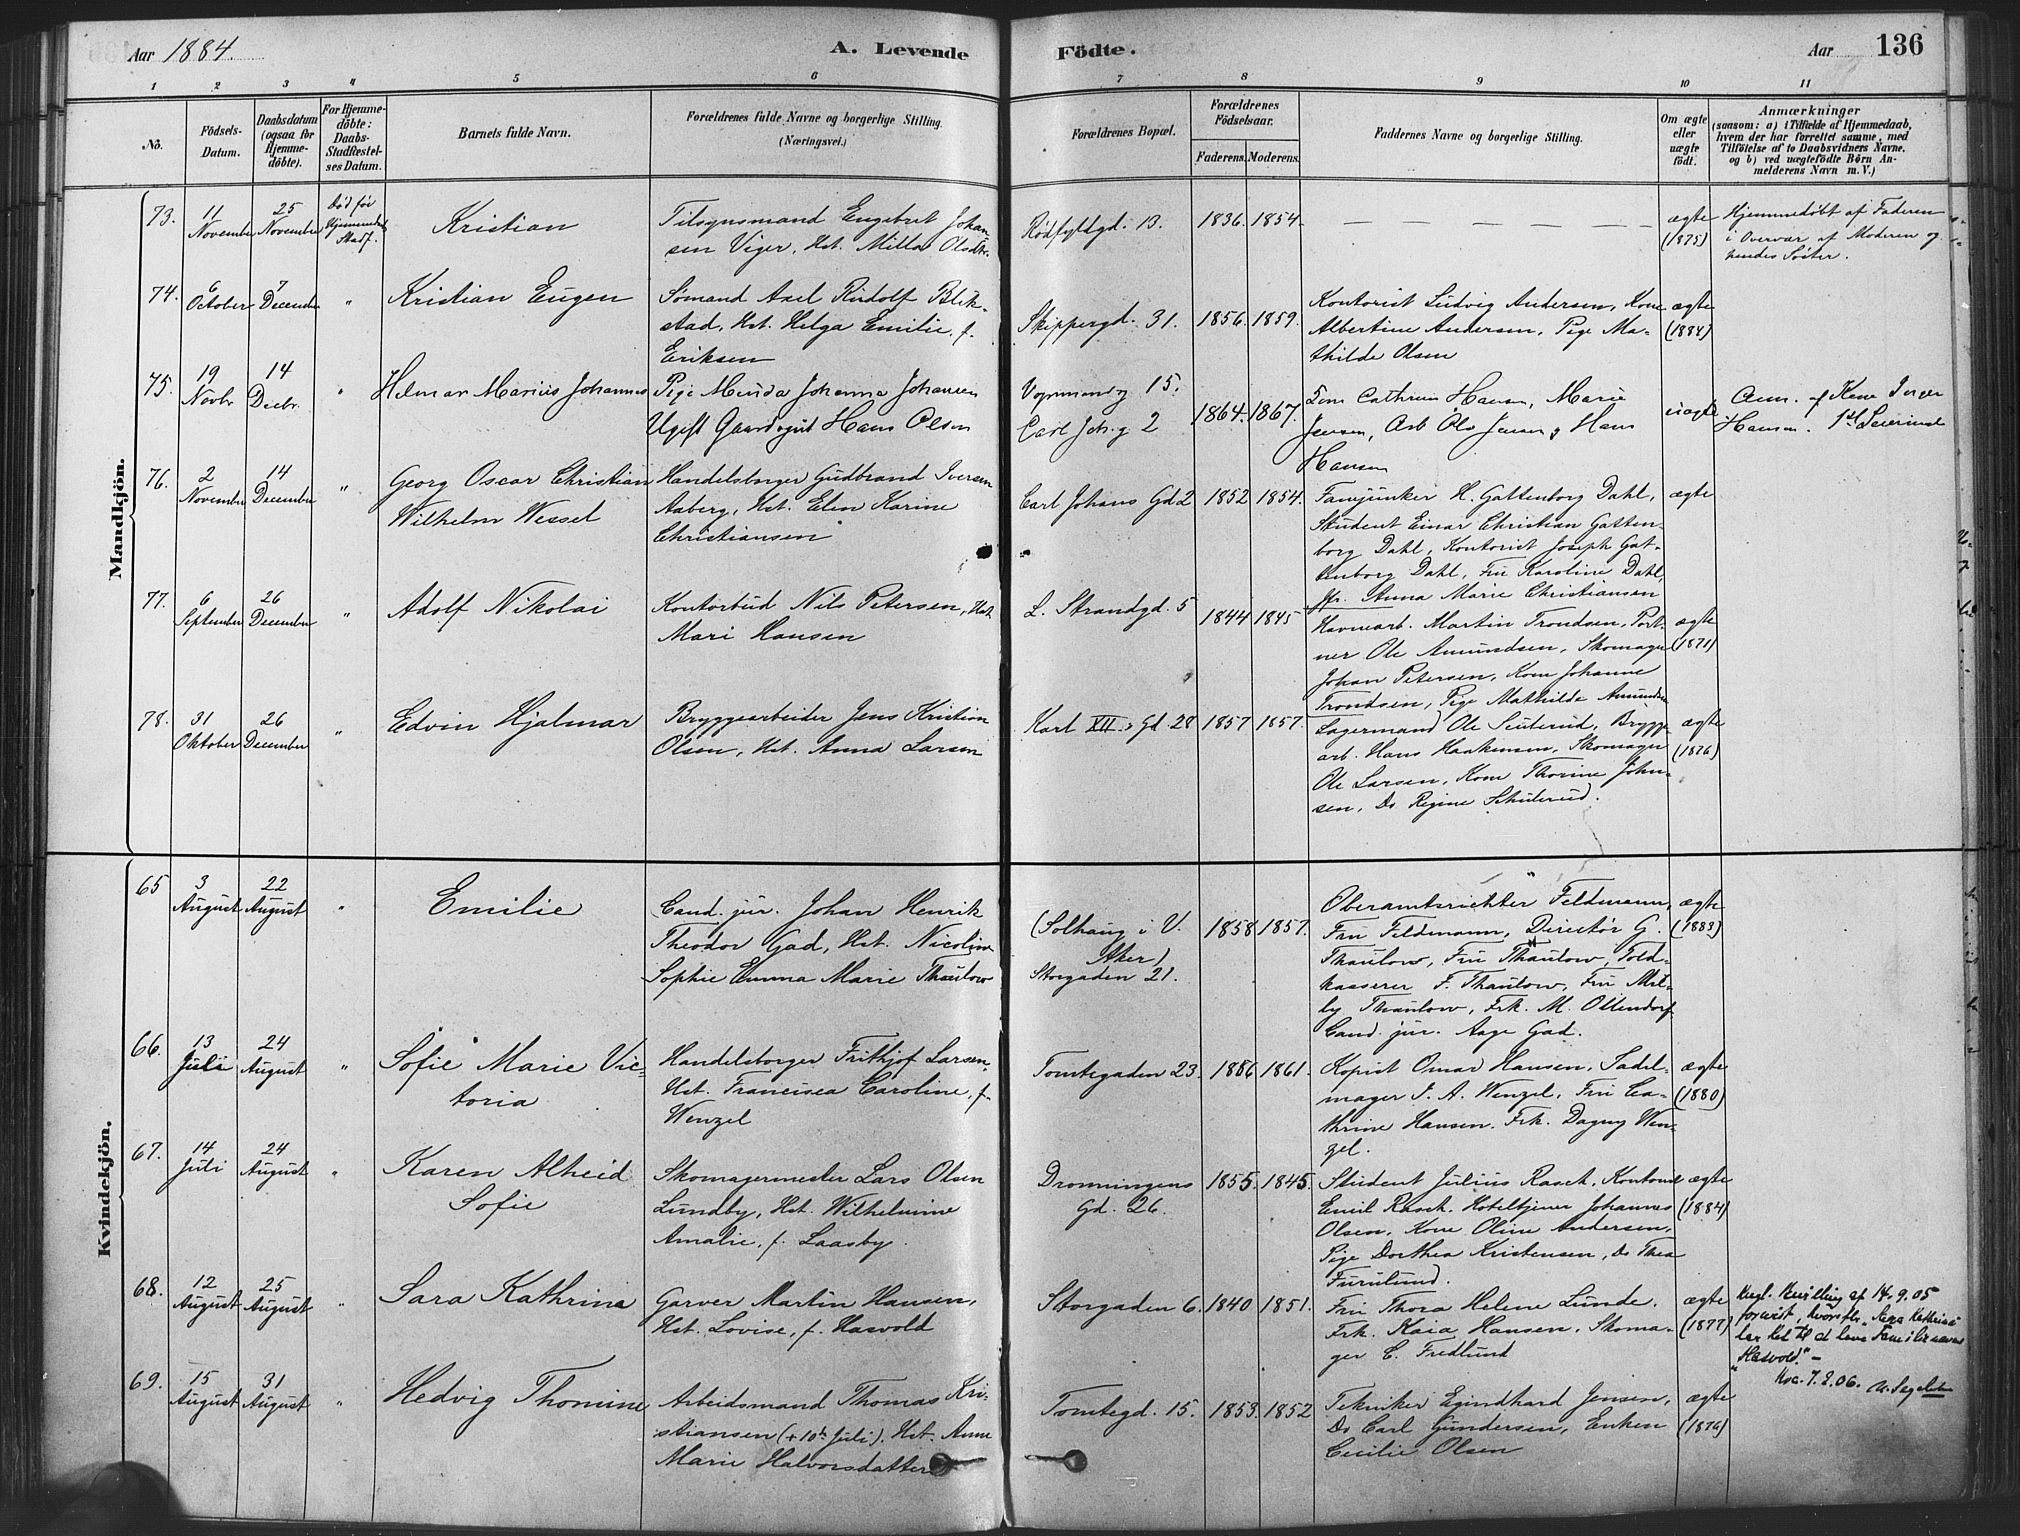 Aar 1884.
A. Levende
Födte.
Aar
136
1 2 3 4 5 6 7 8 9 10 11
No.
Födsels-
Datum.
Daabsdatum
(ogsaa for
Hjemme-
döbte).
For Hjemme-
döbte:
Daabs-
Stadfæstel-
ses Datum.
Barnets fulde Navn.
Forældrenes fulde Navne og borgerlige Stilling.
(Næringsvei.)
Forældrenes Bopæl.
Forældrenes
Födselsaar.
Faderens. Moderens.
Faddernes Navne og borgerlige Stilling.
Om ægte
eller
uægte
födt.
Anmærkninger
(saasom: a) i Tilfælde af Hjemmedaab,
hvem der har forrettet samme, med
Tilföielse af to Daabsvidners Navne,
og b) ved uægtefödte Börn An-
melderens Navn m. V.)
Mandkjön.
73.
11
November
25
November
Död før
Hjemmedaab
Stadf.
Kristian
Tilsynsmand Engebret Johan-
sen Viger, Hst. Milla Olsdtr.
Rödfyldgd. 13.
1836. 1854.
ægte
(1875)
Hjemmedöbt af Faderen
i Overvær af Moderen og
hendes Söster.
74.
6
October
7
December
"
Kristian Eugen
Sömand Axel Rudolf Blik-
stad, Hst. Helga Emilie, f.
Eriksen
Skippergd. 31.
1856. 1859.
Kontorist Ludvig Andersen, Kone
Albertine Andersen, Pige Ma-
thilde Olsen
ægte
(1884)
75.
19
Novbr
14
Decbr.
"
Helmar Marius Johannes
Pige Menda Johanna Johansen
Ugift Gaardsgut Hans Olsen
15.
Carl Joh. g 2
1864. 1867.
Cathrine Hansen, Marie
Jensen, Arb Ols Jensen, Hans
Hansen
uægte
Anm. af Kone
Hansen.
76.
2
November
14
December
"
Georg Oscar Christian
Wilhelm Wessel
Handelsborger Gudbrand Iversen
Aaberg, Hst. Elen Karine
Christiansen
Carl Johans Gd 2
1852. 1854.
Fanejunker H. Gattenborg Dahl,
Student Einar Christian Gatten-
borg Dahl, Kontorist Joseph Gat-
tenborg Dahl, Fru Karoline Dahl,
Jfr. Anna Marie Christiansen
ægte
77.
6
September
26
December
"
Adolf Nikolai
Kontorbud Nils Petersen, Hst.
Mari Hansen
L. Strandgd. 5
1844 1845
Havnearb. Martin Trondsen, Port-
ner Ole Amundsen, Skomager
Johan Petersen, Kone Johanne
Trondsen, Pige Mathilde Amundsen
ægte
(1871)
78.
31
Oktober
26
December
"
Edvin Hjalmar
Bryggearbeider Jens Kristian
Olsen, Hst. Anna Larsen
Karl XII.s Gd 28
1857 1857
Lagermand Ole Suterud, Brygge
arb. Hans Haakensen, Skomager
Ole Larsen, Kone Thorine John-
sen, Do Regine Schuterud.
ægte
(1876)
Kvindekjön.
65
3
August
22
August
"
Emilie
Cand. jur. Johan Henrik
Theodor Gad, Hst. Nicoline
Sophie Emma Marie Thaulow
(Solhaug i V.
Aker)
Storgaden 21.
1858 1857.
Oberamtsrichter Feldmann,
Fru Feldmann, Directör G.
Thaulow, Fru Thaulow, Told-
kasserer F. Thaulow, Fru Mil-
ly Thaulow, Frk. M. Ottendorf
Cand. jur. Aage Gad.
ægte
(1883)
66.
13
Juli
24
August
"
Sofie Marie Vic-
toria
Handelsborger Frithjof Larsen,
Hst. Francisca Caroline, f.
Wenzel
Tomtegaden 23.
1886 1861.
Kopist Omar Hansen, Sadel-
mager J. A. Wenzel, Fru Ca-
thrine Hansen. Frk. Dagny Wen-
zel.
ægte
(1880)
67.
14
Juli
24
August
"
Karen Alheid
Sofie
Skomagermester Lars Olsen
Lundby, Hst. Wilhelmine
Amalie, f. Laasby.
Dronningens
Gd. 26.
1855. 1845.
Student Julius Rasch. Kontorist
Emil Rasch. Hoteltjener Johannes
Olsen, Kone Oline Andersen,
Pige Dorthea Kristensen, Do Thea
Furulund.
ægte
(1884)
68.
12
August
25
August
"
Sara Kathrina
Garver Martin Hansen,
Hst. Lovise, f. Hasvold
Storgaden 6.
1840 1851.
Fru Thora Helene Lunde.
Frk. Kaia Hansen, Skoma-
ger C. Fredlund
ægte
(1877)
Kngl. Bevilling af 14.9.05
forevist, hvorefter "Sara Kathrina"
har ret til at bære Familienavnet
"Hasvold." -
Kra. 7.2.06.
69.
15
August
31
August
"
Hedvig Thomine
Arbeidsmand Thomas Kri-
stiansen (+ 10de Juli). Hst. Anne
Marie Halvorsdatter
Tomtegd. 15.
1853. 1852
Tekniker Egindhard Jensen,
Do Carl Gundersen, Enken
Cecilie Olsen
ægte
(1876)